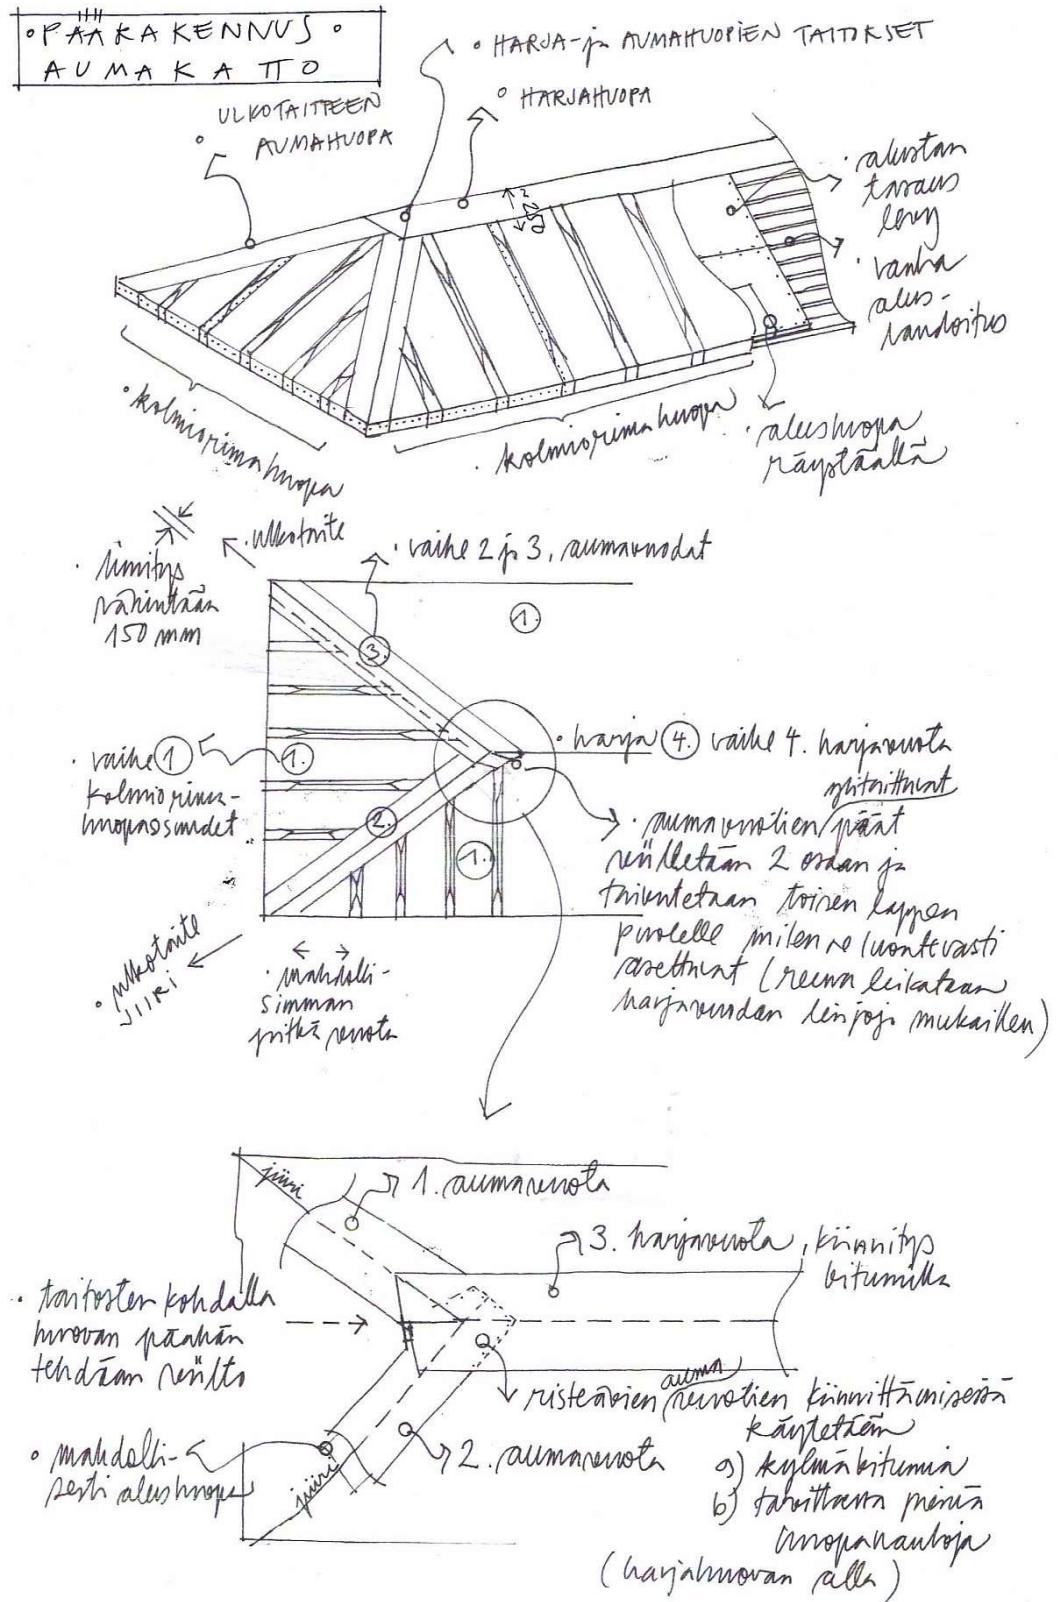 • PÄÄRAKENNUS •
AUMAKATTO
• HARJA- ja AUMAHUOPIEN TAITOKSET
° HARJAHUOPA
° ULKOTAITTEEN
AUMAHUOPA
~250
• alustan
tasaus
levy
• vanha
alus-
laudoitus
• kolmiorimahuopa
• kolmiorimahuopa
• alushuopa
räystäällä
• ulkotaite
• limitys
vähintään
150 mm
• vaihe 2 ja 3, aumavuodat
1.
3.
• vaihe 1
1.
kolmiorima-
huopaosuudet
• harja 4. vaihe 4. harjavuota
2.
1.
ylitaittuvat
• aumavuotien päät
viilletään 2 osaan ja
taivutetaan toisen lappeen
puolelle miten ne luontevasti
asettuvat (reuna leikataan
harjavuodan linjoja mukaillen)
• ulkotaite
JIIRI
• mahdolli-
simman
pitkä vuota
jiiri
1. aumavuota
3. harjavuota, kiinnitys
bitumilla
• taitosten kohdalla
huovan päähän
tehdään viilto
auma
risteävien vuotien kiinnittämisessä
käytetään
a) kylmäbitumia
b) tarvittaessa pieniä
huopanauloja
(harjahuovan alla)
2. aumavuota
• mahdolli-
sesti alushuopa
jiiri